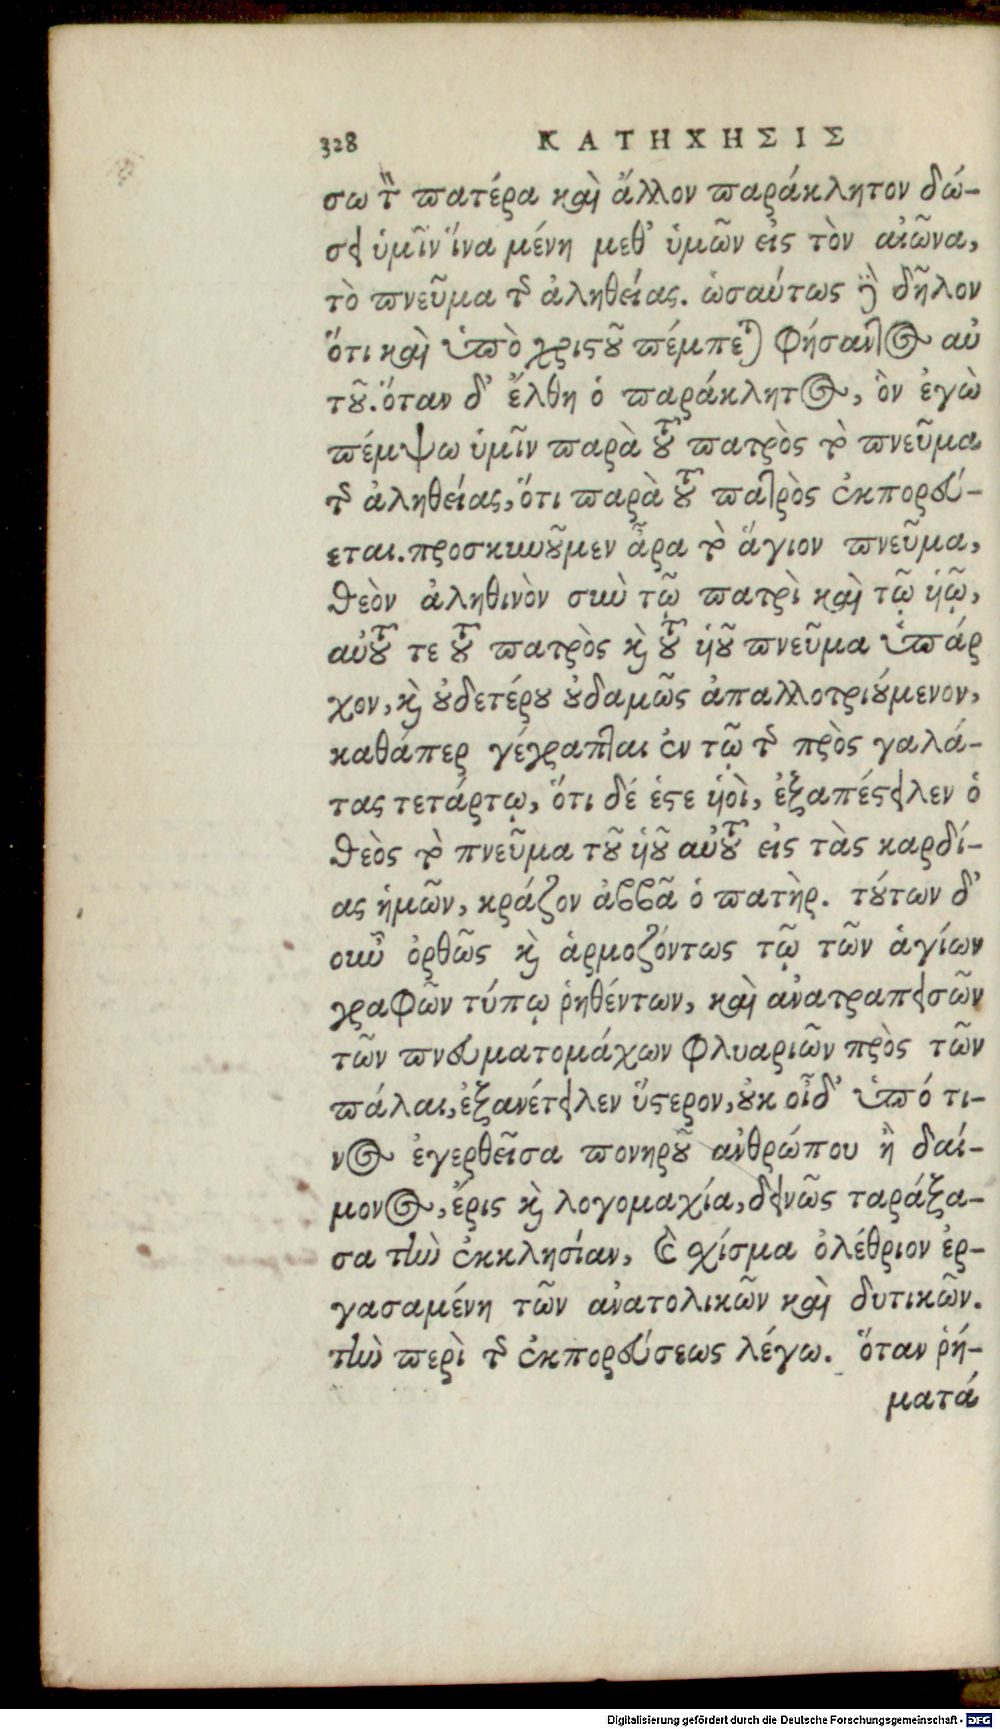 328 ΚΑΤΗΧΗΣΙΣ
σω τὸν πατέρα καὶ ἄλλον παράκλητον δώ-
σει ὑμῖν ἵνα μένη μεθ' ὑμῶν εἰς τὸν αἰῶνα,
τὸ πνεῦμα τῆς ἀληθείας. ὡσαύτως δὲ δῆλον
ὅτι καὶ ὑπὸ χριστοῦ πέμπεται φήσαντος αὐ
τοῦ. ὅταν δ' ἔλθη ὁ παράκλητος, ὃν ἐγὼ
πέμψω ὑμῖν παρὰ τοῦ πατρὸς τὸ πνεῦμα
τῆς ἀληθείας, ὅτι παρὰ τοῦ πατρὸς ἐκπορεύ-
εται. προσκυνοῦμεν ἆρα τὸ ἅγιον πνεῦμα,
θεὸν ἀληθινὸν σὺν τῷ πατρὶ καὶ τῷ ὑῷ,
αὐτοῦ τε τοῦ πατρὸς καὶ τοῦ ὑοῦ πνεῦμα ὑπάρ
χον, καὶ οὐδετέρου οὐδαμῶς ἀπαλλοτριούμενον,
καθάπερ γέγραπται ἐν τῷ τῆς πρὸς γαλά-
τας τετάρτῳ, ὅτι δέ ἐστε ὑοὶ, ἐξαπέστειλεν ὁ
θεὸς τὸ πνεῦμα τοῦ ὑοῦ αὐτοῦ εἰς τὰς καρδί-
ας ἡμῶν, κράζον ἀββᾶ ὁ πατὴρ. τούτων δ'
οὖν ὀρθῶς καὶ ἁρμοζόντως τῷ τῶν ἁγίων
γραφῶν τύπῳ ῥηθέντων, καὶ ἀνατραπεισῶν
τῶν πνευματομάχων φλυαριῶν πρὸς τῶν
πάλαι, ἐξανέτειλεν ὕστερον, οὐκ οἶδ' ὑπό τι-
νος ἐγερθεῖσα πονηροῦ ἀνθρώπου ἢ δαί-
μονος, ἔρις καὶ λογομαχία, δεινῶς ταράξα-
σα τὴν ἐκκλησίαν, καὶ σχίσμα ὀλέθριον ἐρ-
γασαμένη τῶν ἀνατολικῶν καὶ δυτικῶν.
τὴν περὶ τῆς ἐκπορεύσεως λέγω. ὅταν ῥή-
ματά
Digitalisierung gefördert durch die Deutsche Forschungsgemeinschaft - DFG